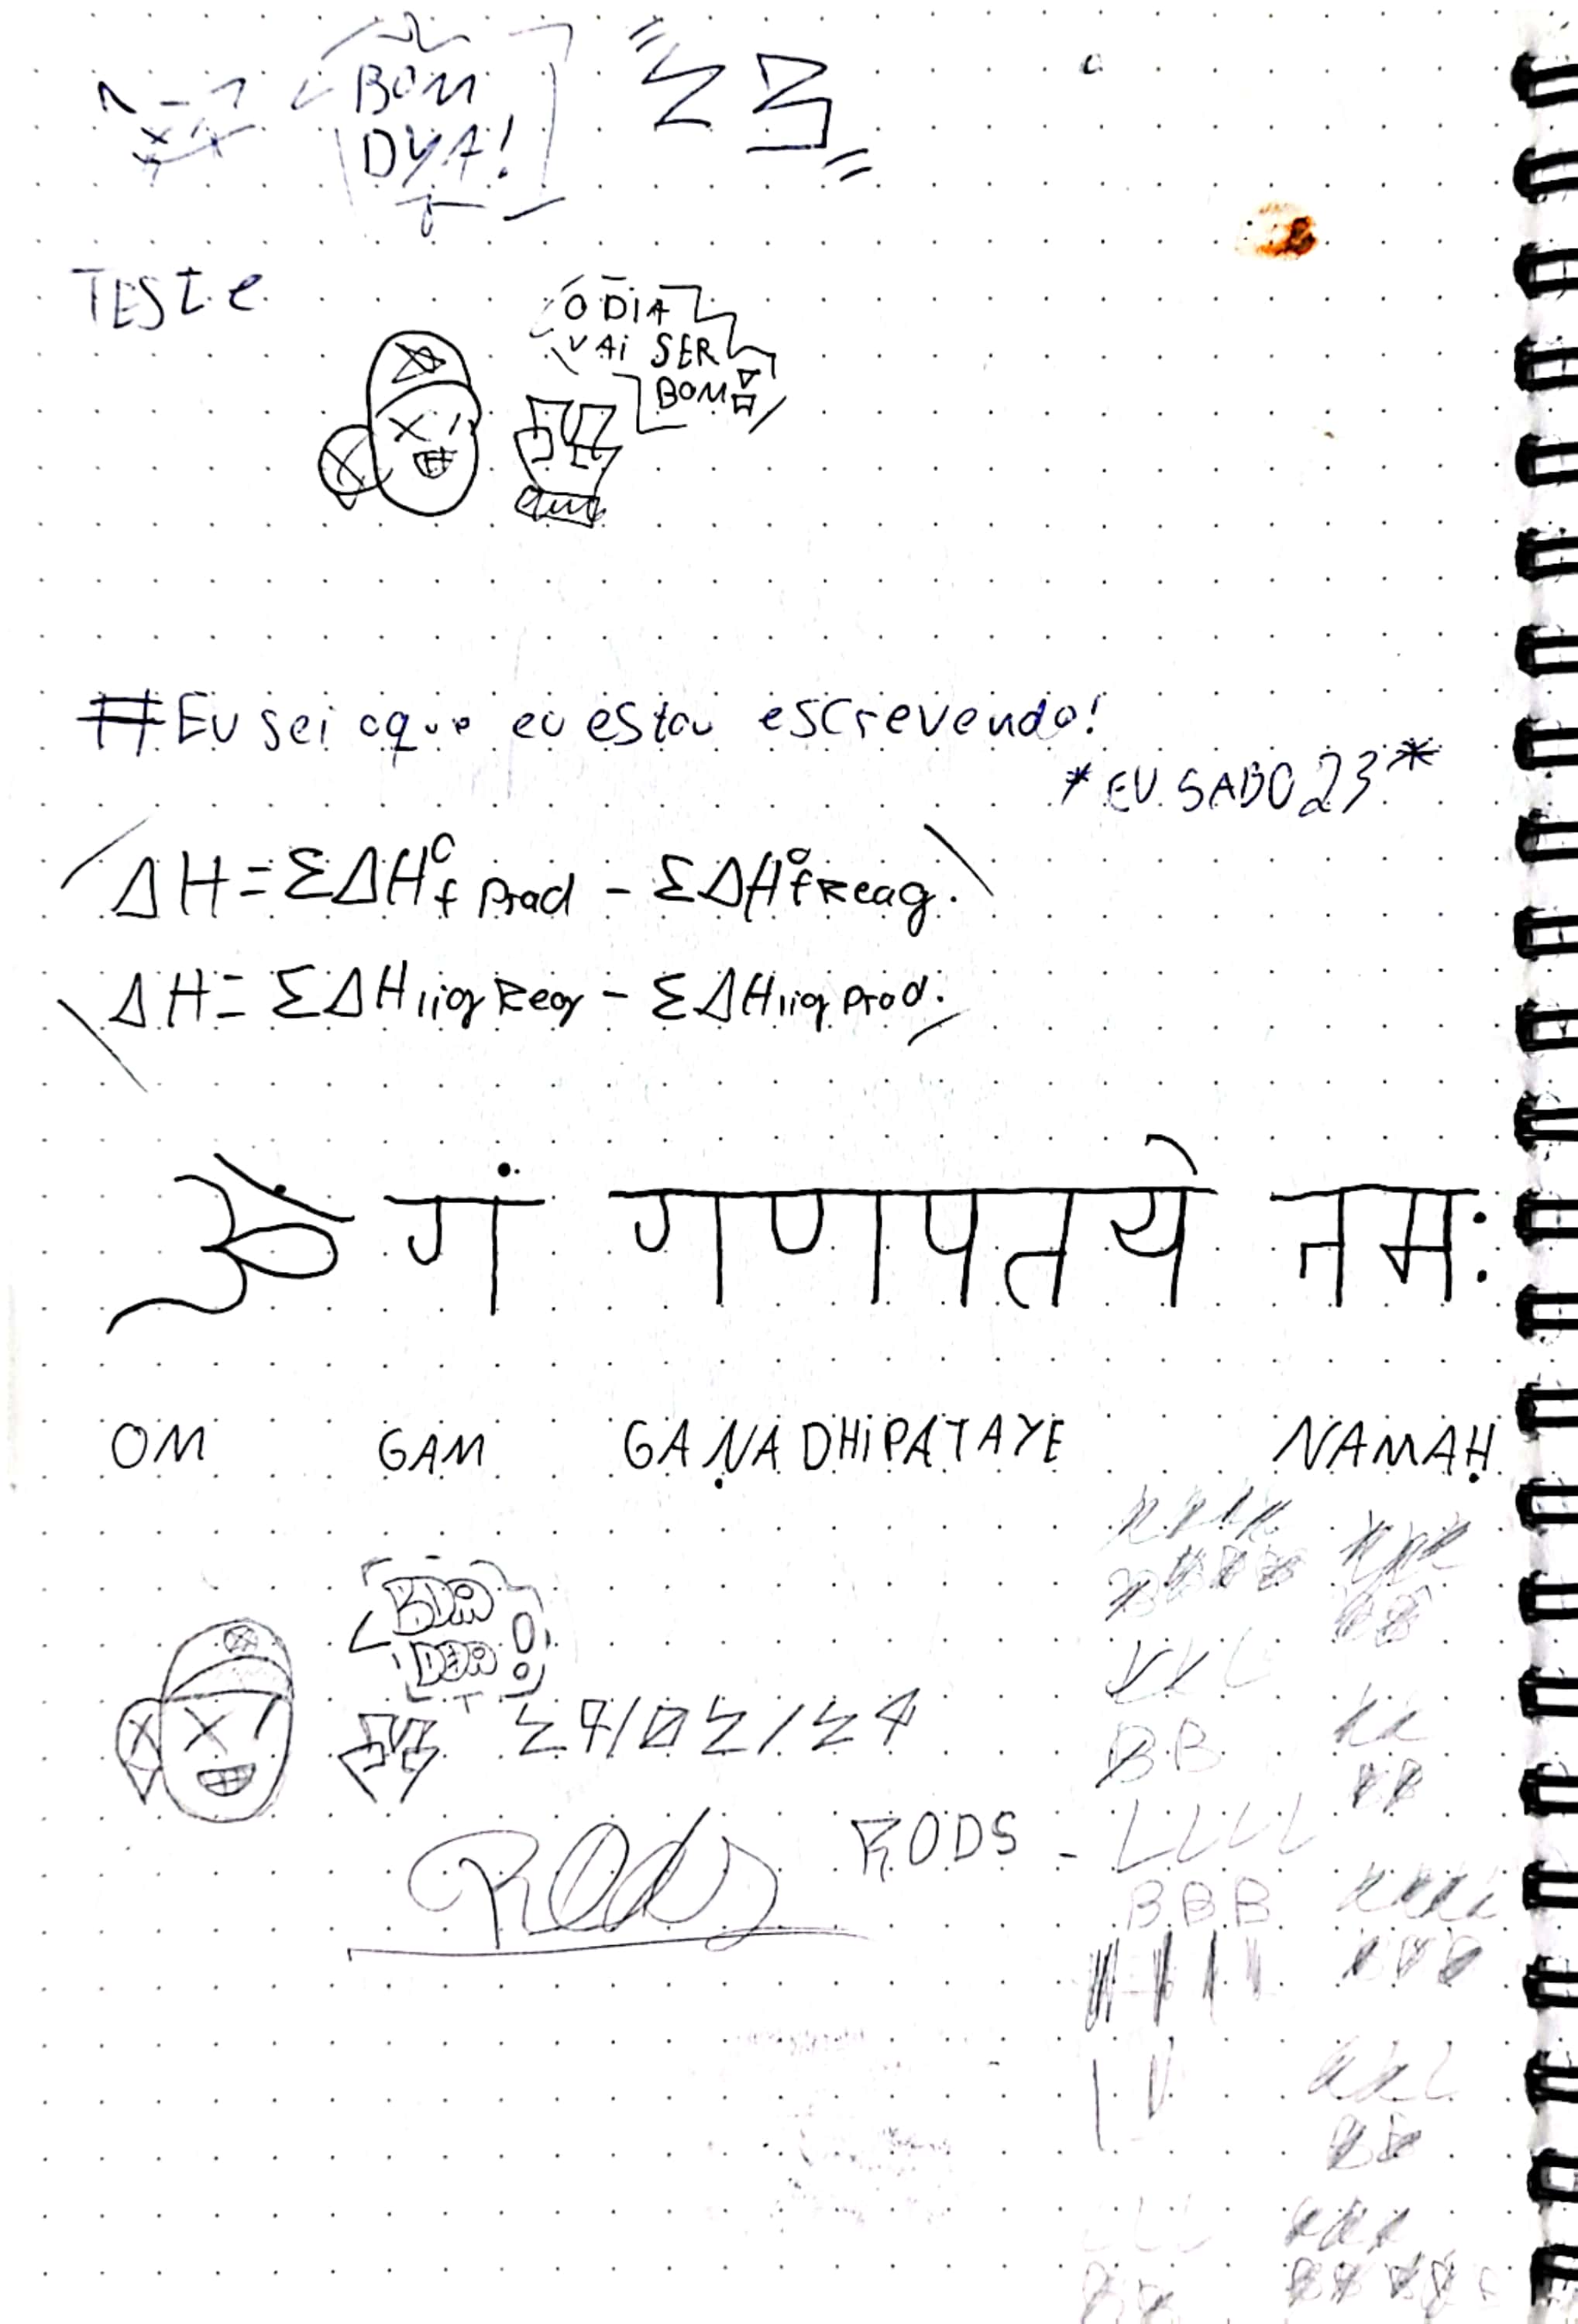 BOM
DYA!
23
TESTe
O DIA
VAI SER
BOM
#Eu sei oque eu estou escrevendo!
*EU SABO 23*
ΔH = ΣΔH°f Prod - ΣΔH°f Reag.
ΔH = ΣΔH lig Reag - ΣΔH lig Prod.
ॐ गं गणपतये नमः
OM GAM GAṆADHIPATAYE NAMAḤ
BOM
DIA!
27/02/24
RODS
Rods
BB
LLLL
BBB